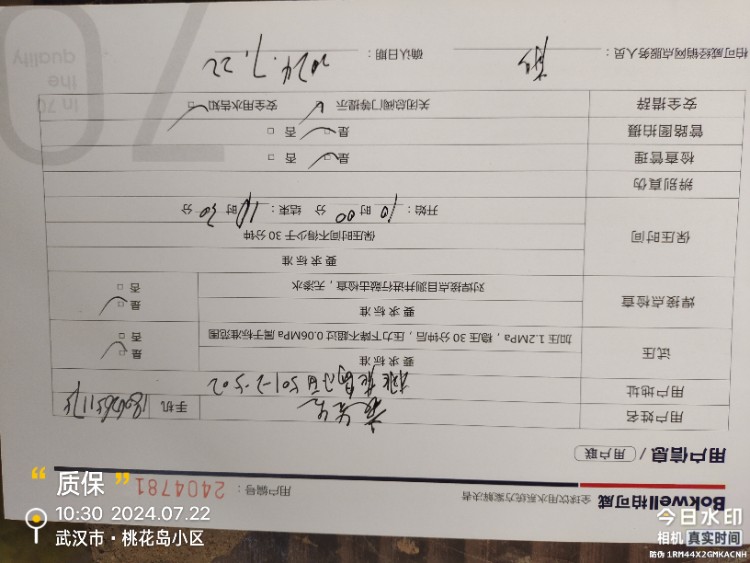 Bokwell柏可威 全球饮用水系统方案解决者
用户编号： 2404781
用户信息 / 用户联
用户姓名 手机
用户地址 桃花岛小区501-2-502
试压 要求标准
加压1.2MPa，稳压30分钟后，压力下降不超过0.06MPa属于标准范围
是 □
否 □
焊接点检查 要求标准
对焊接点目测并进行敲击检查，无渗水
是 □
否 □
保压时间 要求标准
保压时间不得少于30分钟
开始：10时00分 结束：10时30分
辨别真伪
检查管理 是 □ 否 □
管路图拍摄 是 □ 否 □
安全措辞 关闭总阀门等提示 □ 安全用水告知 □
柏可威经销网点服务人员： 确认日期：2024.7.22
in 70
the
quality
70
“质保”
10:30 2024.07.22
武汉市·桃花岛小区
今日水印
相机 真实时间
防伪 1RM44X2GMKACNH